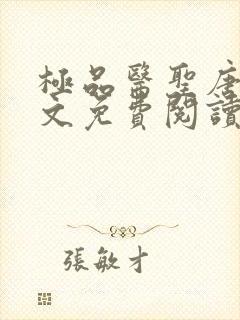 極品醫聖唐
文免費閱讀
張敏才